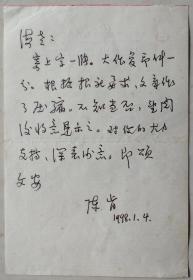 寄上字一幅。大作复印件一
份。根据报社要求，文章作
了压缩。不知当否，望阅
后将意见示之。对你的大力
支持，深表谢意。即颂
文安
陈肯
1998.1.4.